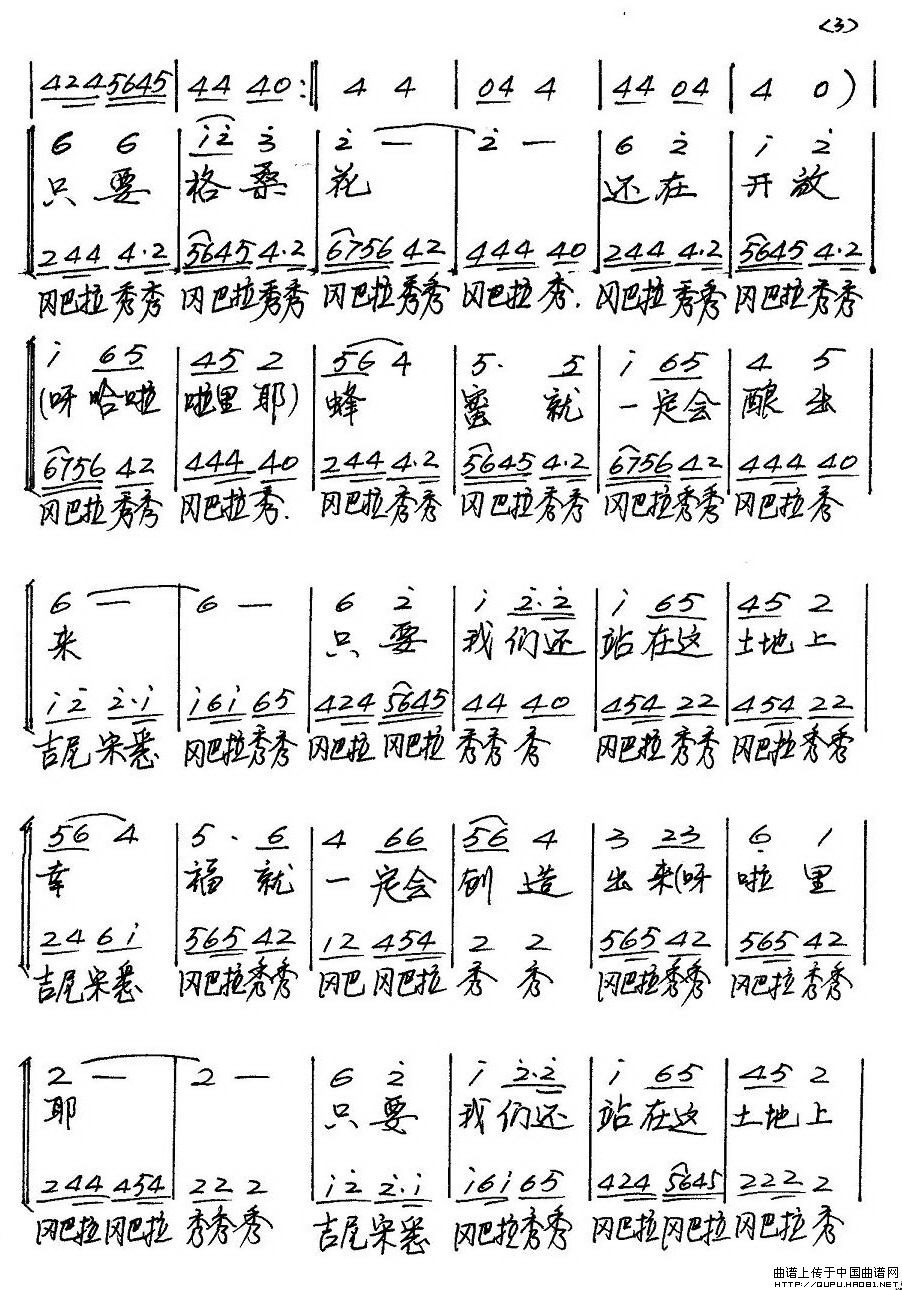 <3>
424 5645 | 44 40 :‖ 4 4 | 04 4 | 44 04 | 4 0 ) |
6 6 | i̇2̇ 3̇ | 2̇ — | 2̇ — | 6 2̇ | i 2̇
只要 格桑 花 还在 开放
244 4·2 | 5645 4·2 | 6756 42 | 444 40 | 244 4·2 | 5645 4·2
冈巴拉秀秀 冈巴拉秀秀 冈巴拉秀秀 冈巴拉秀. 冈巴拉秀秀 冈巴拉秀秀
i 65 | 45 2 | 56 4 | 5· 5 | i 65 | 4 5
(呀哈啦 啦里耶) 蜂 蜜就 一定会 酿出
6756 42 | 444 40 | 244 4·2 | 5645 4·2 | 6756 42 | 444 40
冈巴拉秀秀 冈巴拉秀. 冈巴拉秀秀 冈巴拉秀秀 冈巴拉秀秀 冈巴拉秀
6 — | 6 — | 6 2̇ | i 2̇·2̇ | i 65 | 45 2
来 只要 我们还 站在这 土地上
i2̇ 2̇·i | i6i 65 | 424 5645 | 44 40 | 454 22 | 454 22
吉尾宋悉 冈巴拉秀秀 冈巴拉 冈巴拉 秀秀秀 冈巴拉秀秀 冈巴拉秀秀
56 4 | 5· 6 | 4 66 | 56 4 | 3 23 | 6̣ 1
幸 福就 一定会 创造 出来(呀 啦里
24 6i | 565 42 | 12 454 | 2 2 | 565 42 | 565 42
吉尾宋悉 冈巴拉秀秀 冈巴 冈巴拉 秀秀 冈巴拉秀秀 冈巴拉秀秀
2 — | 2 — | 6 2̇ | i 2̇·2̇ | i 65 | 45 2
耶 只要 我们还 站在这 土地上
244 454 | 22 2 | i2̇ 2̇·i | i6i 65 | 424 5645 | 222 2
冈巴拉冈巴拉 秀秀秀 吉尾宋悉 冈巴拉秀秀 冈巴拉冈巴拉 冈巴拉秀
曲谱上传于中国曲谱网
http://QUPU.HAO81.NET